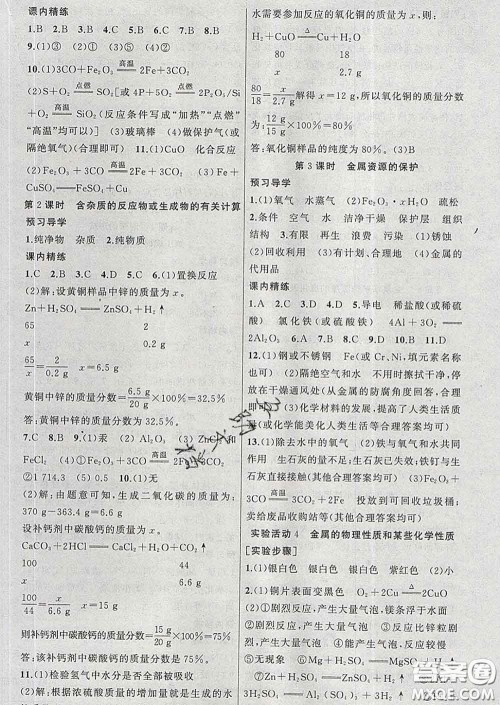 课内精练
1.B 2.B 3.B 4.D 5.D 6.B 7.B 8.B
9.(1)③ (2)⑤ (3)⑤ (4)②
10.(1)3CO+Fe₂O₃ 高温 2Fe+3CO₂
(2)S+O₂ 点燃 SO₂[或4P+5O₂ 点燃 2P₂O₅/Si
+O₂ 高温 SiO₂(反应条件写成“加热”“点燃”
“高温”均可以)] (3)玻璃棒 (4)做保护气(或
隔绝氧气)(合理即可) 11.(1)CuO 化合反应
(2)3CO+Fe₂O₃ 高温 2Fe+3CO₂ (3)Fe+
CuSO₄══FeSO₄+Cu
第2课时 含杂质的反应物或生成物的有关计算
预习导学
1.纯净物 杂质 2.纯物质
课内精练
1.C 2.C 3.C 4.D 5.C 6.(1)置换反应
(2)解:设黄铜样品中锌的质量为x。
Zn+H₂SO₄══ZnSO₄+H₂↑
65 2
x 0.2 g
65/2=x/0.2 g x=6.5 g
黄铜中锌的质量分数=6.5 g/20 g×100%=32.5%
答:黄铜中锌的质量分数为32.5%。
7.C 8.B 9.(1)汞 (2)Al₂O₃ (3)ZnCl₂和
FeCl₂ (4)Fe₂O₃+3CO 高温 2Fe+3CO₂
②1 714.3 (5)0.5 10.(1)无
(2)解:由题意可知,生成二氧化碳的质量为:
367 g+20 g−380.4 g=6.6 g
设补钙剂中碳酸钙的质量为x。
CaCO₃+2HCl══CaCl₂+H₂O+CO₂↑
100 44
x 6.6 g
100/44=x/6.6 g x=15 g
则补钙剂中碳酸钙的质量分数为15 g/20 g×100%=75%
答:该补钙剂中碳酸钙的质量分数是75%。
11.(1)检验氢气中水分是否已被除尽
(2)解:根据浓硫酸质量的增加量就是生成的水
水需要参加反应的氧化铜的质量为x,则:
H₂+CuO △ Cu+H₂O
80 18
x 2.7 g
80/18=x/2.7 g 解得x=12 g,所以氧化铜的质量分数
为:12 g/15 g×100%=80%
答:氧化铜样品的纯度为80%。
第3课时 金属资源的保护
预习导学
1.(1)氧气 水蒸气 (2)Fe₂O₃·xH₂O 疏松
2.条件 空气 水 洁净干燥 保护层 组织
结构 3.(1)有限 再生 浪费 污染 (1)锈蚀
(2)回收利用 (3)有计划、合理地 (4)金属的
代用品
课内精练
1.A 2.A 3.D 4.D 5.导电 稀盐酸(或稀硫
酸) 氯化铁(或硫酸铁) 4Al+3O₂══
2Al₂O₃ 6.B 7.D 8.B 9.B 10.D 11.D
12.(1)钢或不锈钢 Fe(或Cr、Ni,填元素名称
也可) (2)空气和水 不用时擦拭干净,停
放在干燥通风处(从金属的防腐角度回答,合理
即可) (3)化学材料的发展,提高了人类生活质
量(或化学能美化人类生活等合理答案也可)
13.(1)除去水中的氧气 (2)铁与氧气和水共同
作用 生石灰的量不足;生石灰已失效;铁钉与生
石灰直接接触(其他合理答案均可) (3)Fe₂O₃+
3CO 高温 2Fe+3CO₂ 投放到可回收垃圾桶;
卖给废品收购站等(其他合理答案均可)
实验活动4 金属的物理性质和某些化学性质
[实验步骤]
1.(1)银白色 银白色 银白色 紫红色 (2)小
2.(1)铜片表面变黑色 2Cu+O₂ △ 2CuO
(2)①剧烈反应,产生大量气泡,镁条浮于水面
②剧烈反应,产生大量气泡 ③反应比锌粒剧
烈,产生大量气泡 ④产生少量气泡,反应较慢
⑤无现象 ⑥Mg+H₂SO₄══MgSO₄+H₂↑
3H₂SO₄══Al₂(SO₄)₃+3H₂↑
答案圈
MXQE.COM